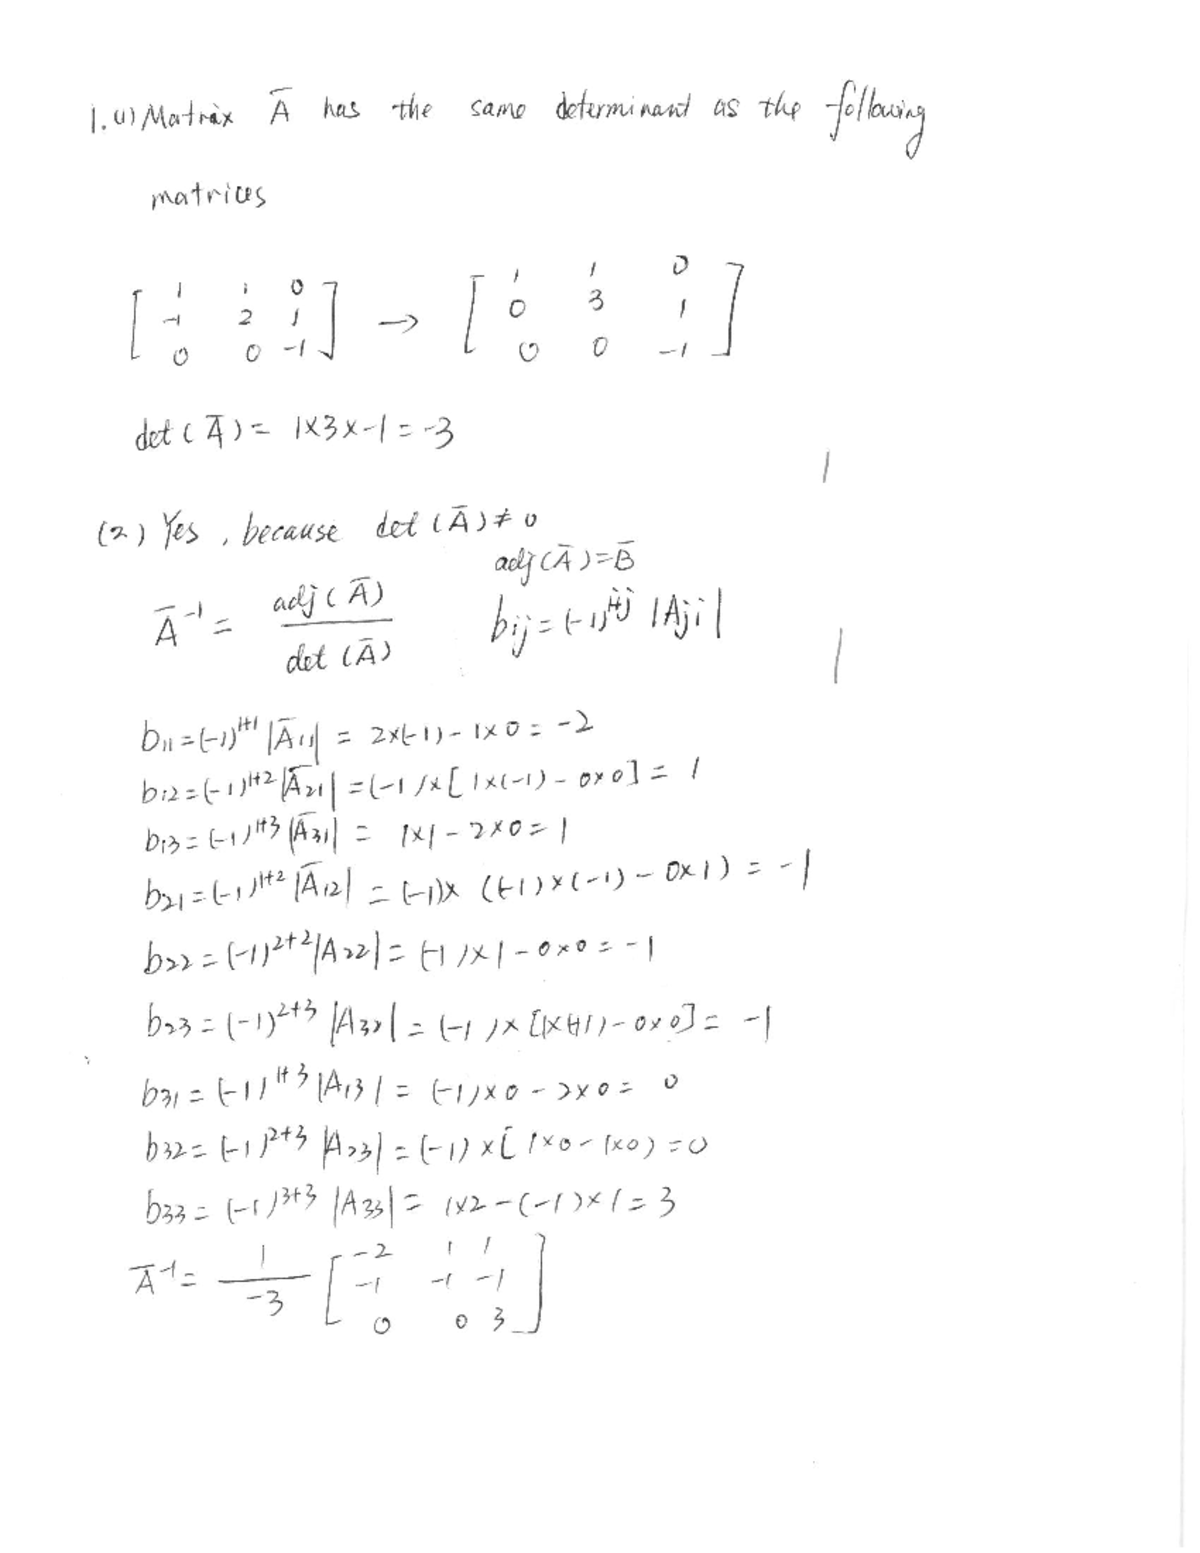 1. (1) Matrix Ā has the same determinant as the following
matrices
[ 1 1 0 ] → [ 1 1 0 ]
[ -1 2 1 ] [ 0 3 1 ]
[ 0 0 -1 ] [ 0 0 -1 ]
det(Ā) = 1×3×-1 = -3
(2) Yes, because det(Ā) ≠ 0
adj(Ā) = B̄
Ā⁻¹ = adj(Ā) / det(Ā) bij = (-1)^{i+j} |Aji|
b11 = (-1)^{1+1} |Ā11| = 2×(-1) - 1×0 = -2
b12 = (-1)^{1+2} |Ā21| = (-1)×[1×(-1) - 0×0] = 1
b13 = (-1)^{1+3} |Ā31| = 1×1 - 2×0 = 1
b21 = (-1)^{1+2} |Ā12| = (-1)× ((-1)×(-1) - 0×1) = -1
b22 = (-1)^{2+2} |A22| = (-1)×1 - 0×0 = -1
b23 = (-1)^{2+3} |A32| = (-1)×[1×(+1) - 0×0] = -1
b31 = (-1)^{1+3} |A13| = (-1)×0 - 2×0 = 0
b32 = (-1)^{2+3} |A23| = (-1)×[1×0 - 1×0) = 0
b33 = (-1)^{3+3} |A33| = 1×2 - (-1)×1 = 3
Ā⁻¹ = 1 / -3 [ -2 1 1 ]
[ -1 -1 -1 ]
[ 0 0 3 ]